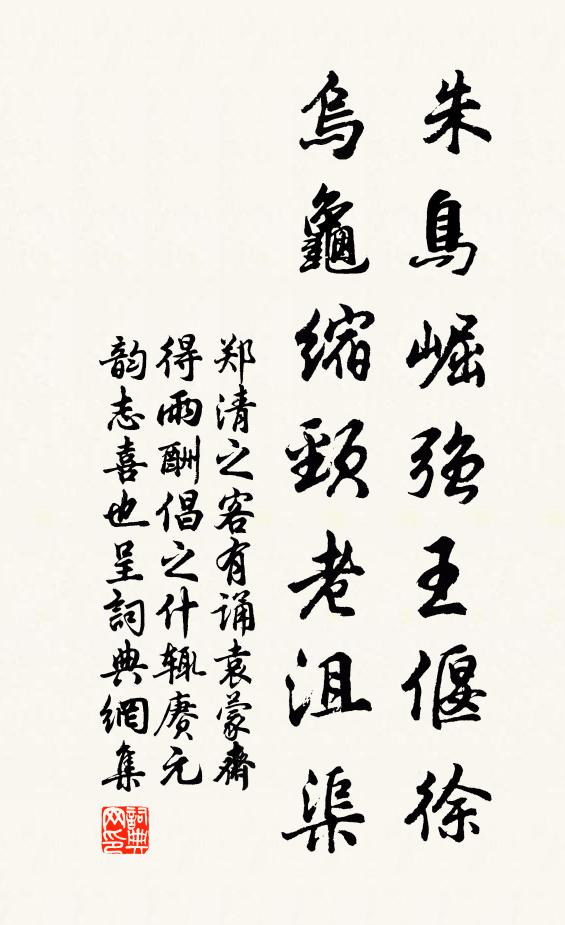 朱鳥崛强王偃徐
烏龜縮頸老沮渠
郑清之客有诵袁蒙齋
得雨酬倡之什辄赓元
韵志喜也呈詞典網集
詞典
网印